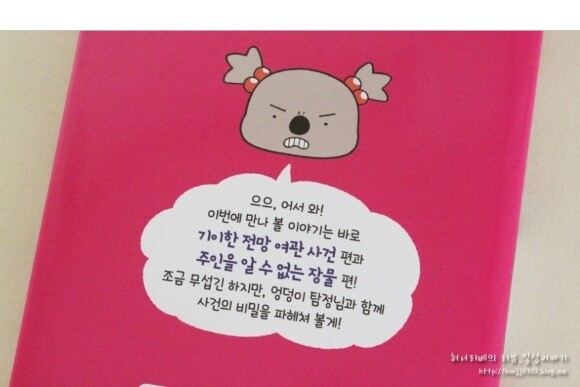 으으, 어서 와!
이번에 만나 볼 이야기는 바로
기이한 전망 여관 사건 편과
주인을 알 수 없는 장물 편!
조금 무섭긴 하지만, 엉덩이 탐정님과 함께
사건의 비밀을 파헤쳐 볼게!